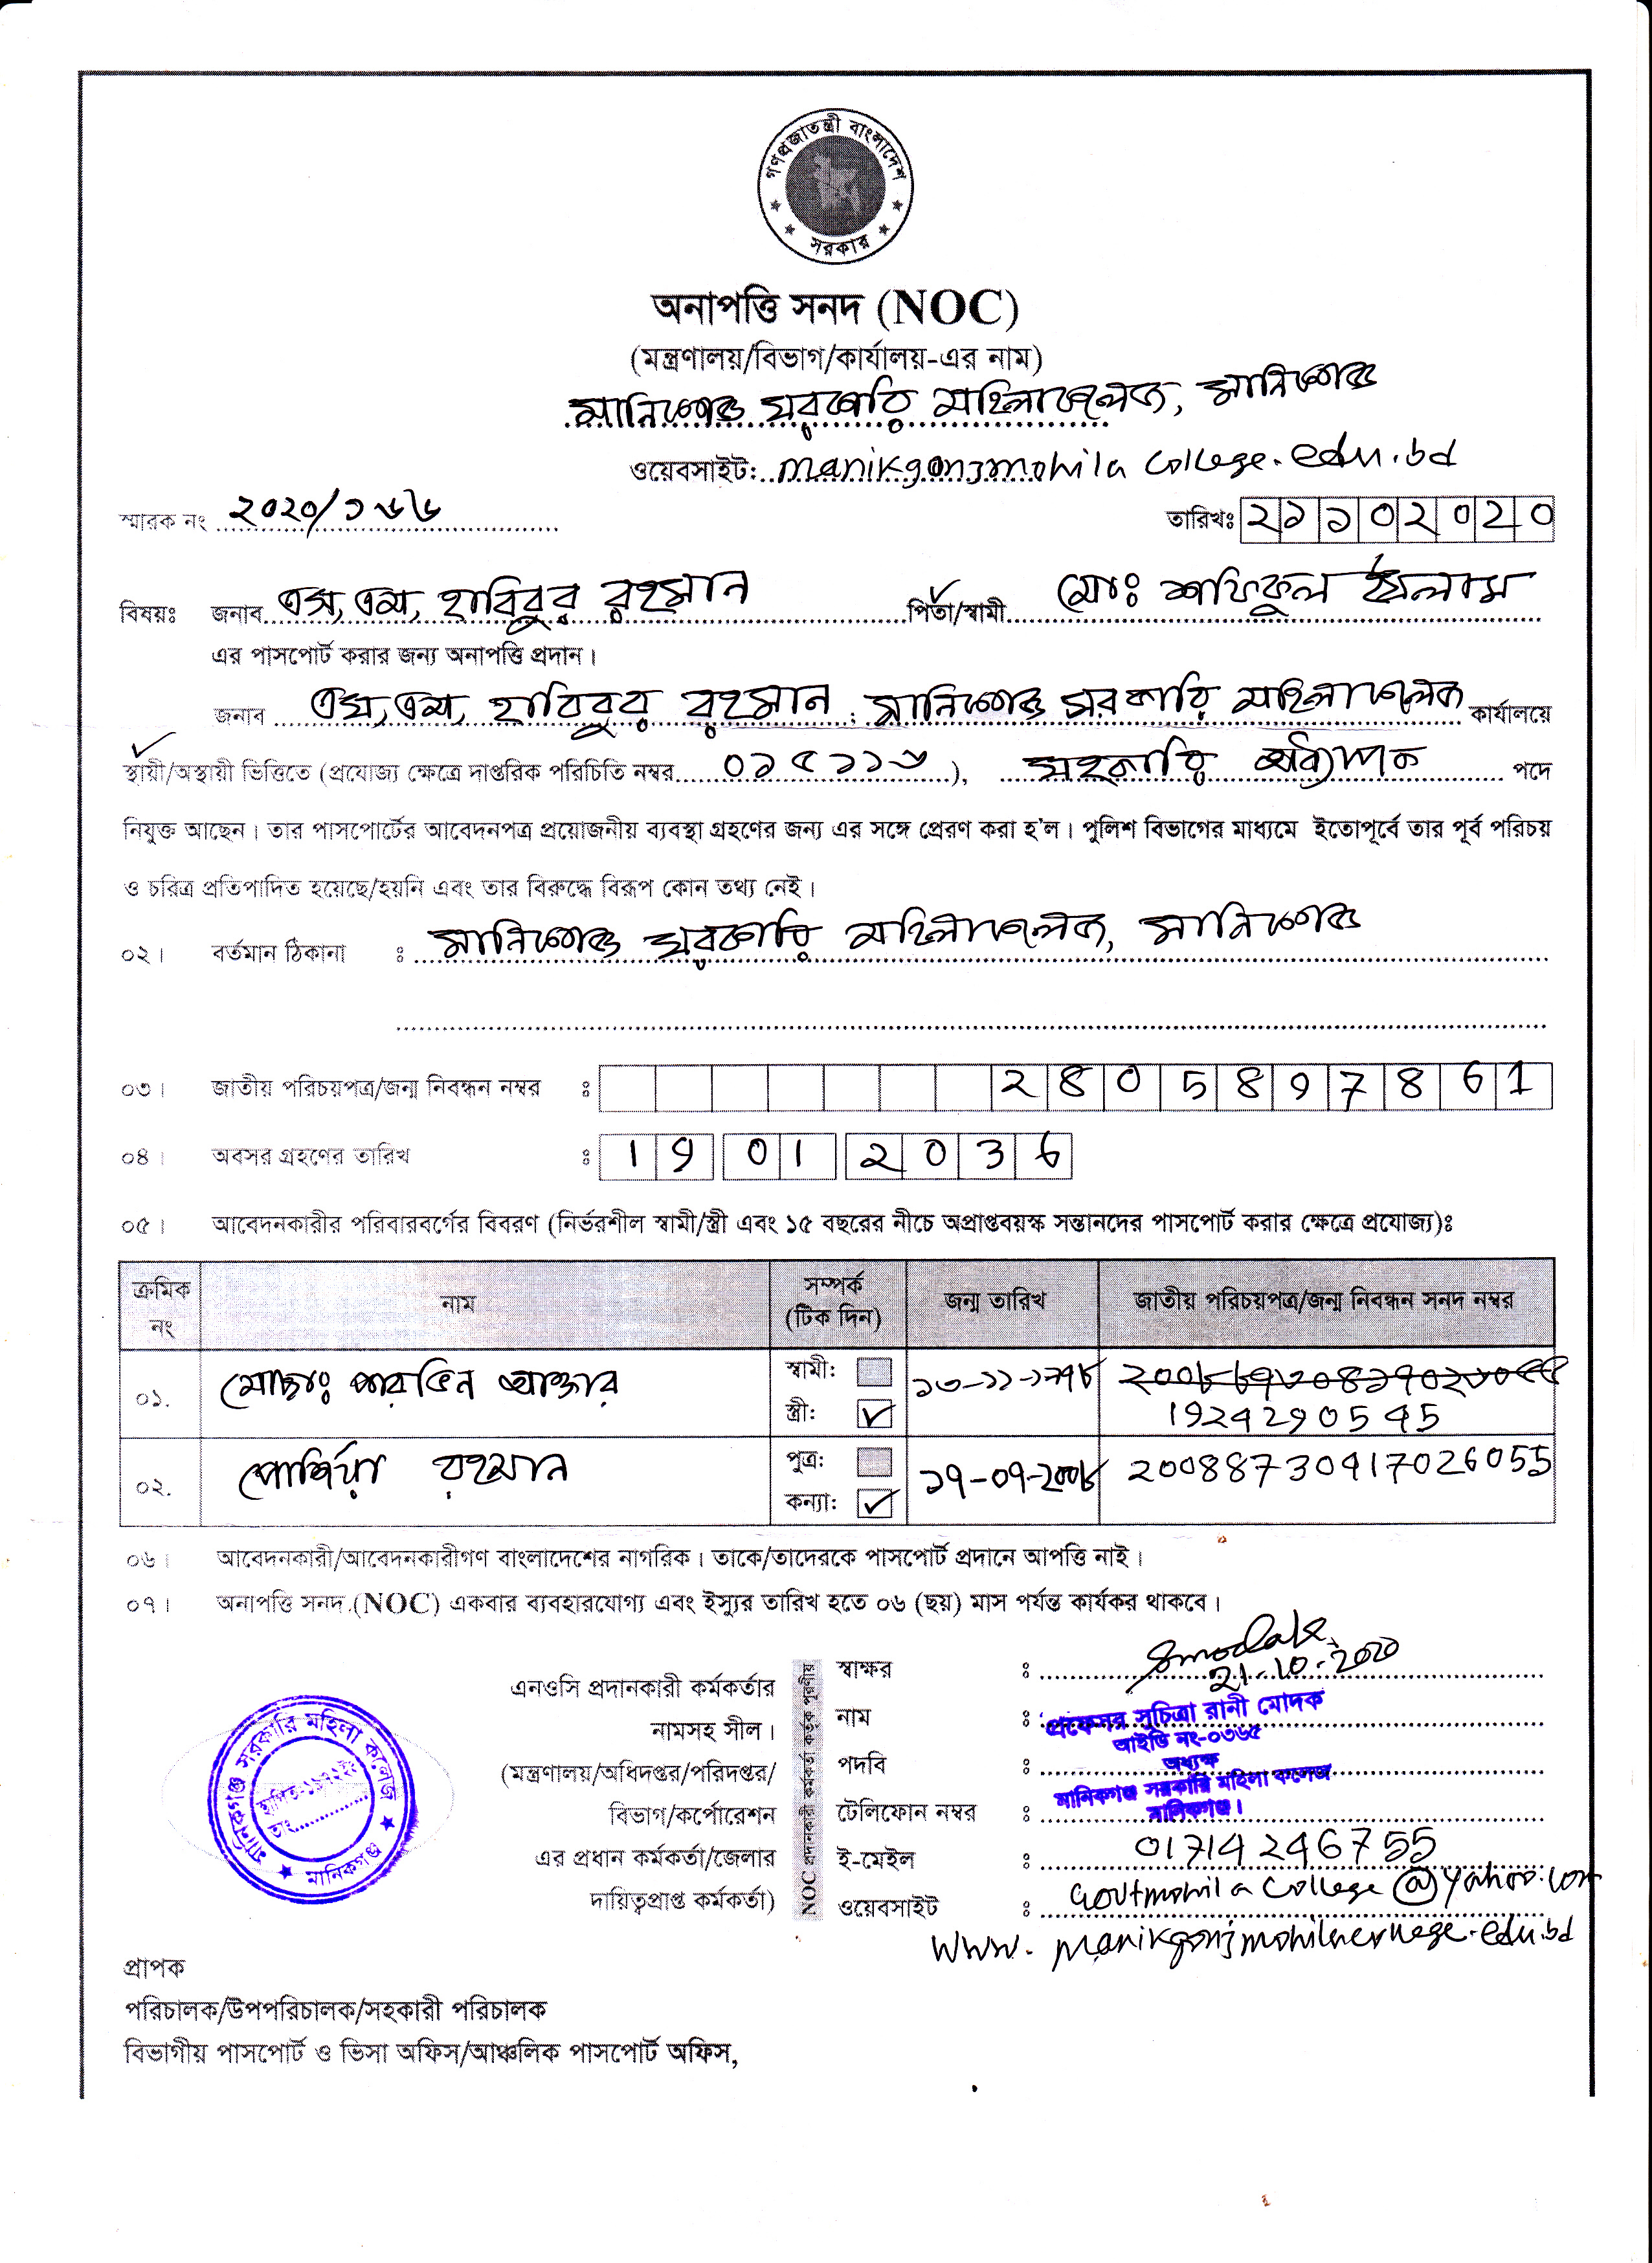 গণপ্রজাতন্ত্রী বাংলাদেশ
সরকার
অনাপত্তি সনদ (NOC)
(মন্ত্রণালয়/বিভাগ/কার্যালয়-এর নাম)
মানিকগঞ্জ সরকারি মহিলা কলেজ, মানিকগঞ্জ
ওয়েবসাইট: manikganjmohila college.edu.bd
স্মারক নং ২০২০/১৬৬ তারিখঃ ২১১০২০২০
বিষয়ঃ জনাব এস, এম, হাবিবুর রহমান পিতা/স্বামী মোঃ শফিকুল ইসলাম
এর পাসপোর্ট করার জন্য অনাপত্তি প্রদান।
জনাব এস, এম, হাবিবুর রহমান, মানিকগঞ্জ সরকারি মহিলা কলেজ কার্যালয়ে
স্থায়ী/অস্থায়ী ভিত্তিতে (প্রযোজ্য ক্ষেত্রে দাপ্তরিক পরিচিতি নম্বর ০১৫১১৬), সহকারি অধ্যাপক পদে
নিযুক্ত আছেন। তার পাসপোর্টের আবেদনপত্র প্রয়োজনীয় ব্যবস্থা গ্রহণের জন্য এর সঙ্গে প্রেরণ করা হ'ল। পুলিশ বিভাগের মাধ্যমে ইতোপূর্বে তার পূর্ব পরিচয়
ও চরিত্র প্রতিপাদিত হয়েছে/হয়নি এবং তার বিরুদ্ধে বিরূপ কোন তথ্য নেই।
০২। বর্তমান ঠিকানা ঃ মানিকগঞ্জ সরকারি মহিলা কলেজ, মানিকগঞ্জ
০৩। জাতীয় পরিচয়পত্র/জন্ম নিবন্ধন নম্বর ঃ 2805897861
০৪। অবসর গ্রহণের তারিখ ঃ 19 01 2036
০৫। আবেদনকারীর পরিবারবর্গের বিবরণ (নির্ভরশীল স্বামী/স্ত্রী এবং ১৫ বছরের নীচে অপ্রাপ্তবয়স্ক সন্তানদের পাসপোর্ট করার ক্ষেত্রে প্রযোজ্য)ঃ
ক্রমিক নং নাম সম্পর্ক (টিক দিন) জন্ম তারিখ জাতীয় পরিচয়পত্র/জন্ম নিবন্ধন সনদ নম্বর
০১. মোছাঃ পারভিন আক্তার স্বামী:
স্ত্রী: ✓ 1924290545
০২. রহমান পুত্র: 20088730417026055
কন্যা: ✓ ১৭-০৭-২০০৮
০৬। আবেদনকারী/আবেদনকারীগণ বাংলাদেশের নাগরিক। তাকে/তাদেরকে পাসপোর্ট প্রদানে আপত্তি নাই।
০৭। অনাপত্তি সনদ (NOC) একবার ব্যবহারযোগ্য এবং ইস্যুর তারিখ হতে ০৬ (ছয়) মাস পর্যন্ত কার্যকর থাকবে।
এনওসি প্রদানকারী কর্মকর্তার
নামসহ সীল।
(মন্ত্রণালয়/অধিদপ্তর/পরিদপ্তর/
বিভাগ/কর্পোরেশন
এর প্রধান কর্মকর্তা/জেলার
দায়িত্বপ্রাপ্ত কর্মকর্তা)
মানিকগঞ্জ সরকারি মহিলা কলেজ
স্থাপিত-১৯৭২ইং
তাং
মানিকগঞ্জ
NOC প্রদানকারী কর্মকর্তা কর্তৃক পূরণীয়
স্বাক্ষর ঃ 21.10.2020
নাম ঃ প্রফেসর সুচিত্রা রানী মোদক
আইডি নং-০৩৬৫
পদবি ঃ অধ্যক্ষ
মানিকগঞ্জ সরকারি মহিলা কলেজ
মানিকগঞ্জ।
টেলিফোন নম্বর ঃ
01714246755
ই-মেইল ঃ
Govtmohila College@yahoo.com
ওয়েবসাইট ঃ
www.manikganjmohilacollege.edu.bd
প্রাপক
পরিচালক/উপপরিচালক/সহকারী পরিচালক
বিভাগীয় পাসপোর্ট ও ভিসা অফিস/আঞ্চলিক পাসপোর্ট অফিস,